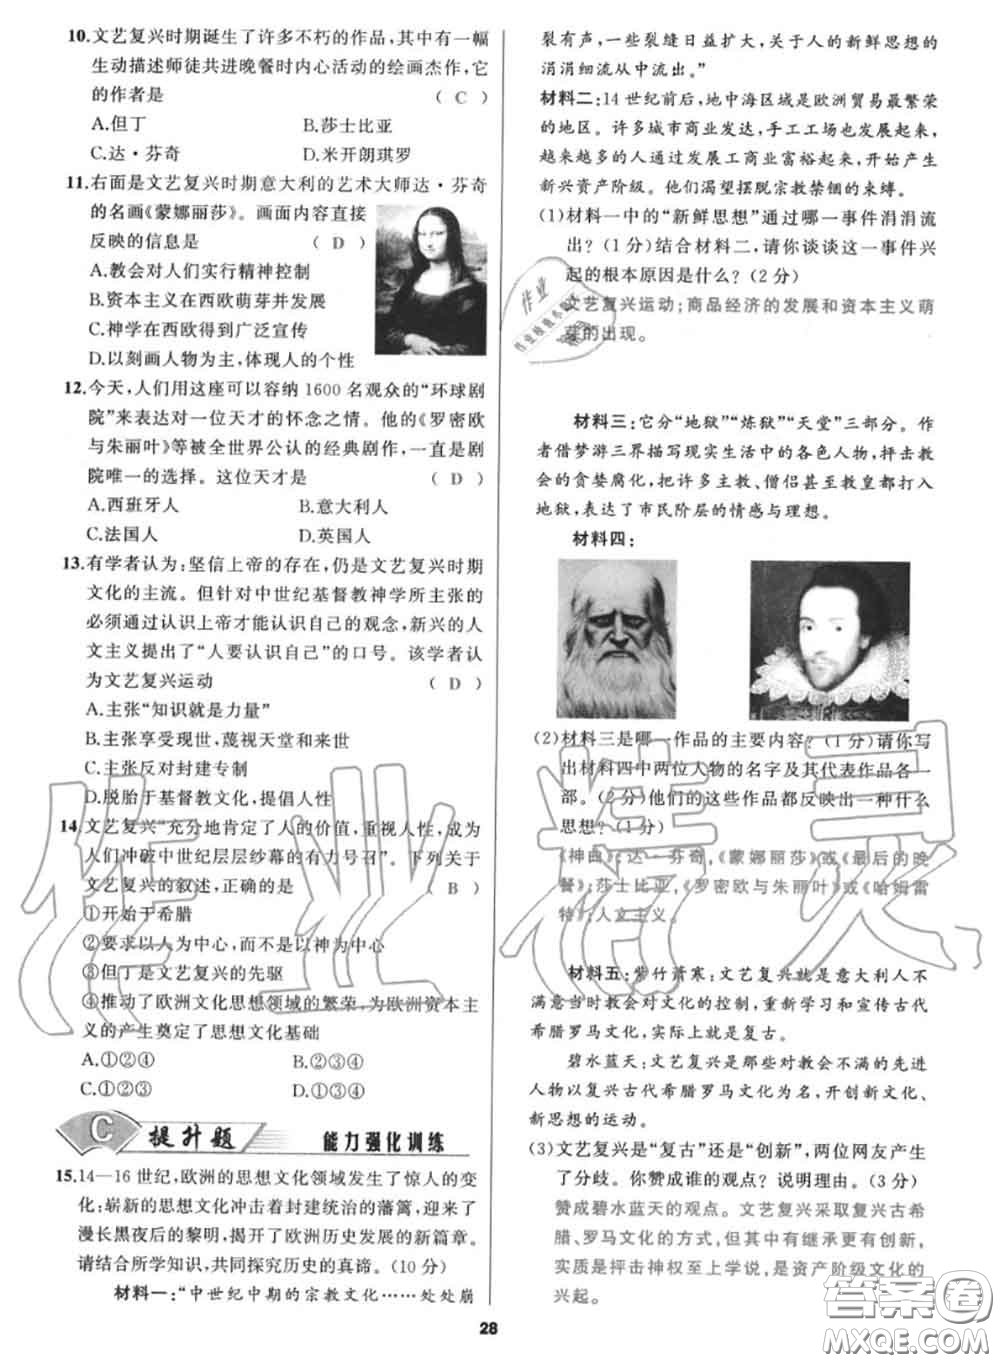 10.文艺复兴时期诞生了许多不朽的作品,其中有一幅
生动描述师徒共进晚餐时内心活动的绘画杰作,它
的作者是 ( C )
A.但丁 B.莎士比亚
C.达·芬奇 D.米开朗琪罗
11.右面是文艺复兴时期意大利的艺术大师达·芬奇
的名画《蒙娜丽莎》。画面内容直接
反映的信息是 ( D )
A.教会对人们实行精神控制
B.资本主义在西欧萌芽并发展
C.神学在西欧得到广泛宣传
D.以刻画人物为主,体现人的个性
12.今天,人们用这座可以容纳1600名观众的“环球剧
院”来表达对一位天才的怀念之情。他的《罗密欧
与朱丽叶》等被全世界公认的经典剧作,一直是剧
院唯一的选择。这位天才是 ( D )
A.西班牙人 B.意大利人
C.法国人 D.英国人
13.有学者认为:坚信上帝的存在,仍是文艺复兴时期
文化的主流。但针对中世纪基督教神学所主张的
必须通过认识上帝才能认识自己的观念,新兴的人
文主义提出了“人要认识自己”的口号。该学者认
为文艺复兴运动 ( D )
A.主张“知识就是力量”
B.主张享受现世,蔑视天堂和来世
C.主张反对封建专制
D.脱胎于基督教文化,提倡人性
14.文艺复兴“充分地肯定了人的价值,重视人性,成为
人们冲破中世纪层层纱幕的有力号召”。下列关于
文艺复兴的叙述,正确的是 ( B )
①开始于希腊
②要求以人为中心,而不是以神为中心
③但丁是文艺复兴的先驱
④推动了欧洲文化思想领域的繁荣,为欧洲资本主
义的产生奠定了思想文化基础
A.①②④ B.②③④
C.①②③ D.①③④
C 提升题 能力强化训练
15.14—16世纪,欧洲的思想文化领域发生了惊人的变
化;崭新的思想文化冲击着封建统治的藩篱,迎来了
漫长黑夜后的黎明,揭开了欧洲历史发展的新篇章。
请结合所学知识,共同探究历史的真谛。(10分)
材料一:“中世纪中期的宗教文化……处处崩
裂有声,一些裂缝日益扩大,关于人的新鲜思想的
涓涓细流从中流出。”
材料二:14世纪前后,地中海区域是欧洲贸易最繁荣
的地区。许多城市商业发达,手工工场也发展起来,
越来越多的人通过发展工商业富裕起来,开始产生
新兴资产阶级。他们渴望摆脱宗教禁锢的束缚。
(1)材料一中的“新鲜思想”通过哪一事件涓涓流
出?(1分)结合材料二,请你谈谈这一事件兴
起的根本原因是什么?(2分)
文艺复兴运动;商品经济的发展和资本主义萌
芽的出现。
材料三:它分“地狱”“炼狱”“天堂”三部分。作
者借梦游三界描写现实生活中的各色人物,抨击教
会的贪婪腐化,把许多主教、僧侣甚至教皇都打入
地狱,表达了市民阶层的情感与理想。
材料四:
(2)材料三是哪一作品的主要内容?(1分)请你写
出材料四中两位人物的名字及其代表作品各一
部。(2分)他们的这些作品都反映出一种什么
思想?(1分)
《神曲》;达·芬奇,《蒙娜丽莎》或《最后的晚
餐》;莎士比亚,《罗密欧与朱丽叶》或《哈姆雷
特》;人文主义。
材料五:紫竹萧寒:文艺复兴就是意大利人不
满意当时教会对文化的控制,重新学习和宣传古代
希腊罗马文化,实际上就是复古。
碧水蓝天:文艺复兴是那些对教会不满的先进
人物以复兴古代希腊罗马文化为名,开创新文化、
新思想的运动。
(3)文艺复兴是“复古”还是“创新”,两位网友产生
了分歧。你赞成谁的观点?说明理由。(3分)
赞成碧水蓝天的观点。文艺复兴采取复兴古希
腊、罗马文化的方式,但其中有继承更有创新,
实质是抨击神权至上学说,是资产阶级文化的
兴起。
28
作业精灵
答案圈
MXQE.COM